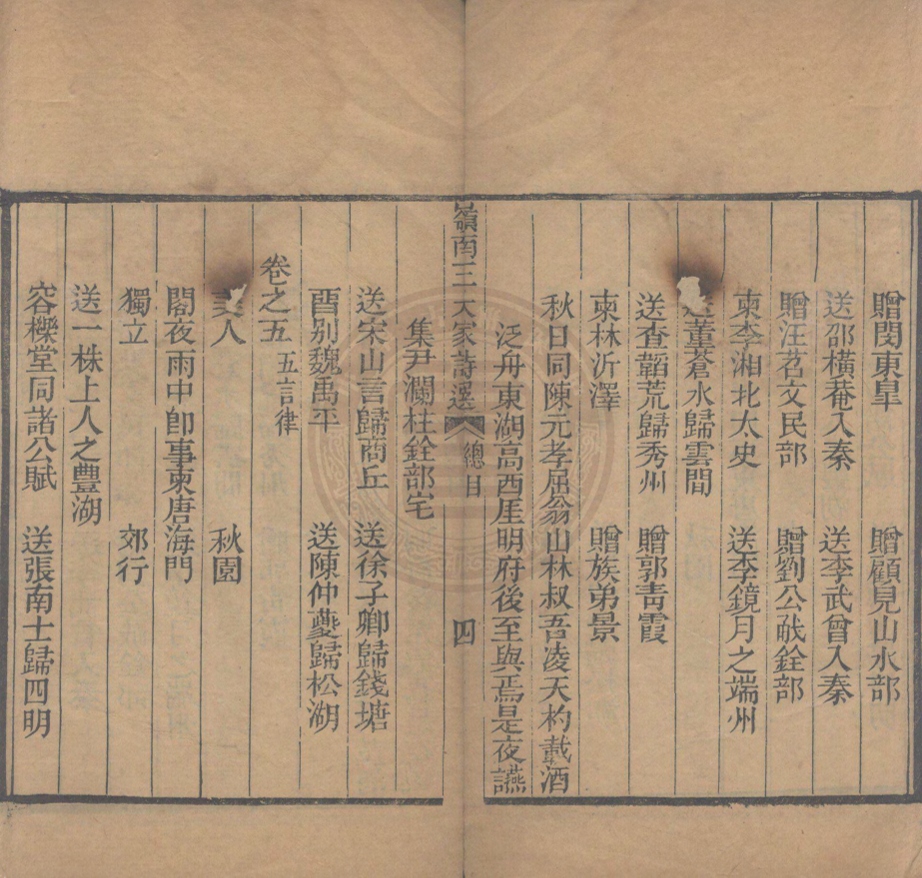 贈閔東皐　贈顧見山水部
送邵橫菴入秦　送李武曾入秦
贈汪苕文民部　贈劉公㦷銓部
柬李湘北太史　送李鏡月之端州
董蒼水歸雲間
送查韜荒歸秀州　贈郭青霞
柬林沂澤　贈族弟景
秋日同陳元孝屈翁山林叔吾凌天杓載酒
泛舟東湖高西厓明府後至與焉是夜讌
嶺南三大家詩選　總目　四
集尹瀾柱銓部宅
送宋山言歸商丘　送徐子卿歸錢塘
酉別魏禹平　送陳仲夔歸松湖
卷之五　五言律
美人　秋園
閣夜雨中卽事柬唐海門
獨立　郊行
送一株上人之豐湖
容櫟堂同諸公賦　送張南士歸四明